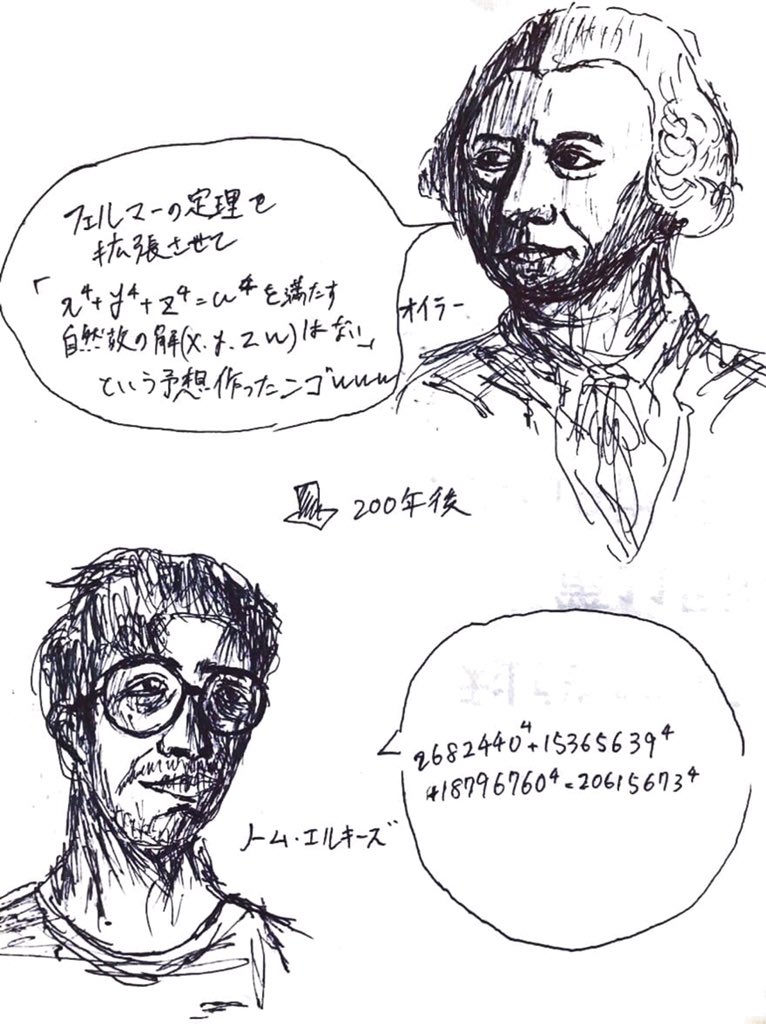 フェルマーの定理を
拡張させて
「x⁴+y⁴+z⁴=w⁴を満たす
自然数の解(x.y.z w)はない」
という予想作ったンゴwww
オイラー
200年後
2682440⁴+15365639⁴
+18796760⁴=20615673⁴
ノーム・エルキーズ